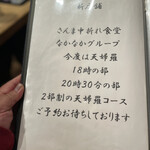 さんま中折れ食堂
なかなかグループ
今度は天婦羅
18時の部
20時30分の部
2部制の天婦羅コース
ご予約お待ちしております